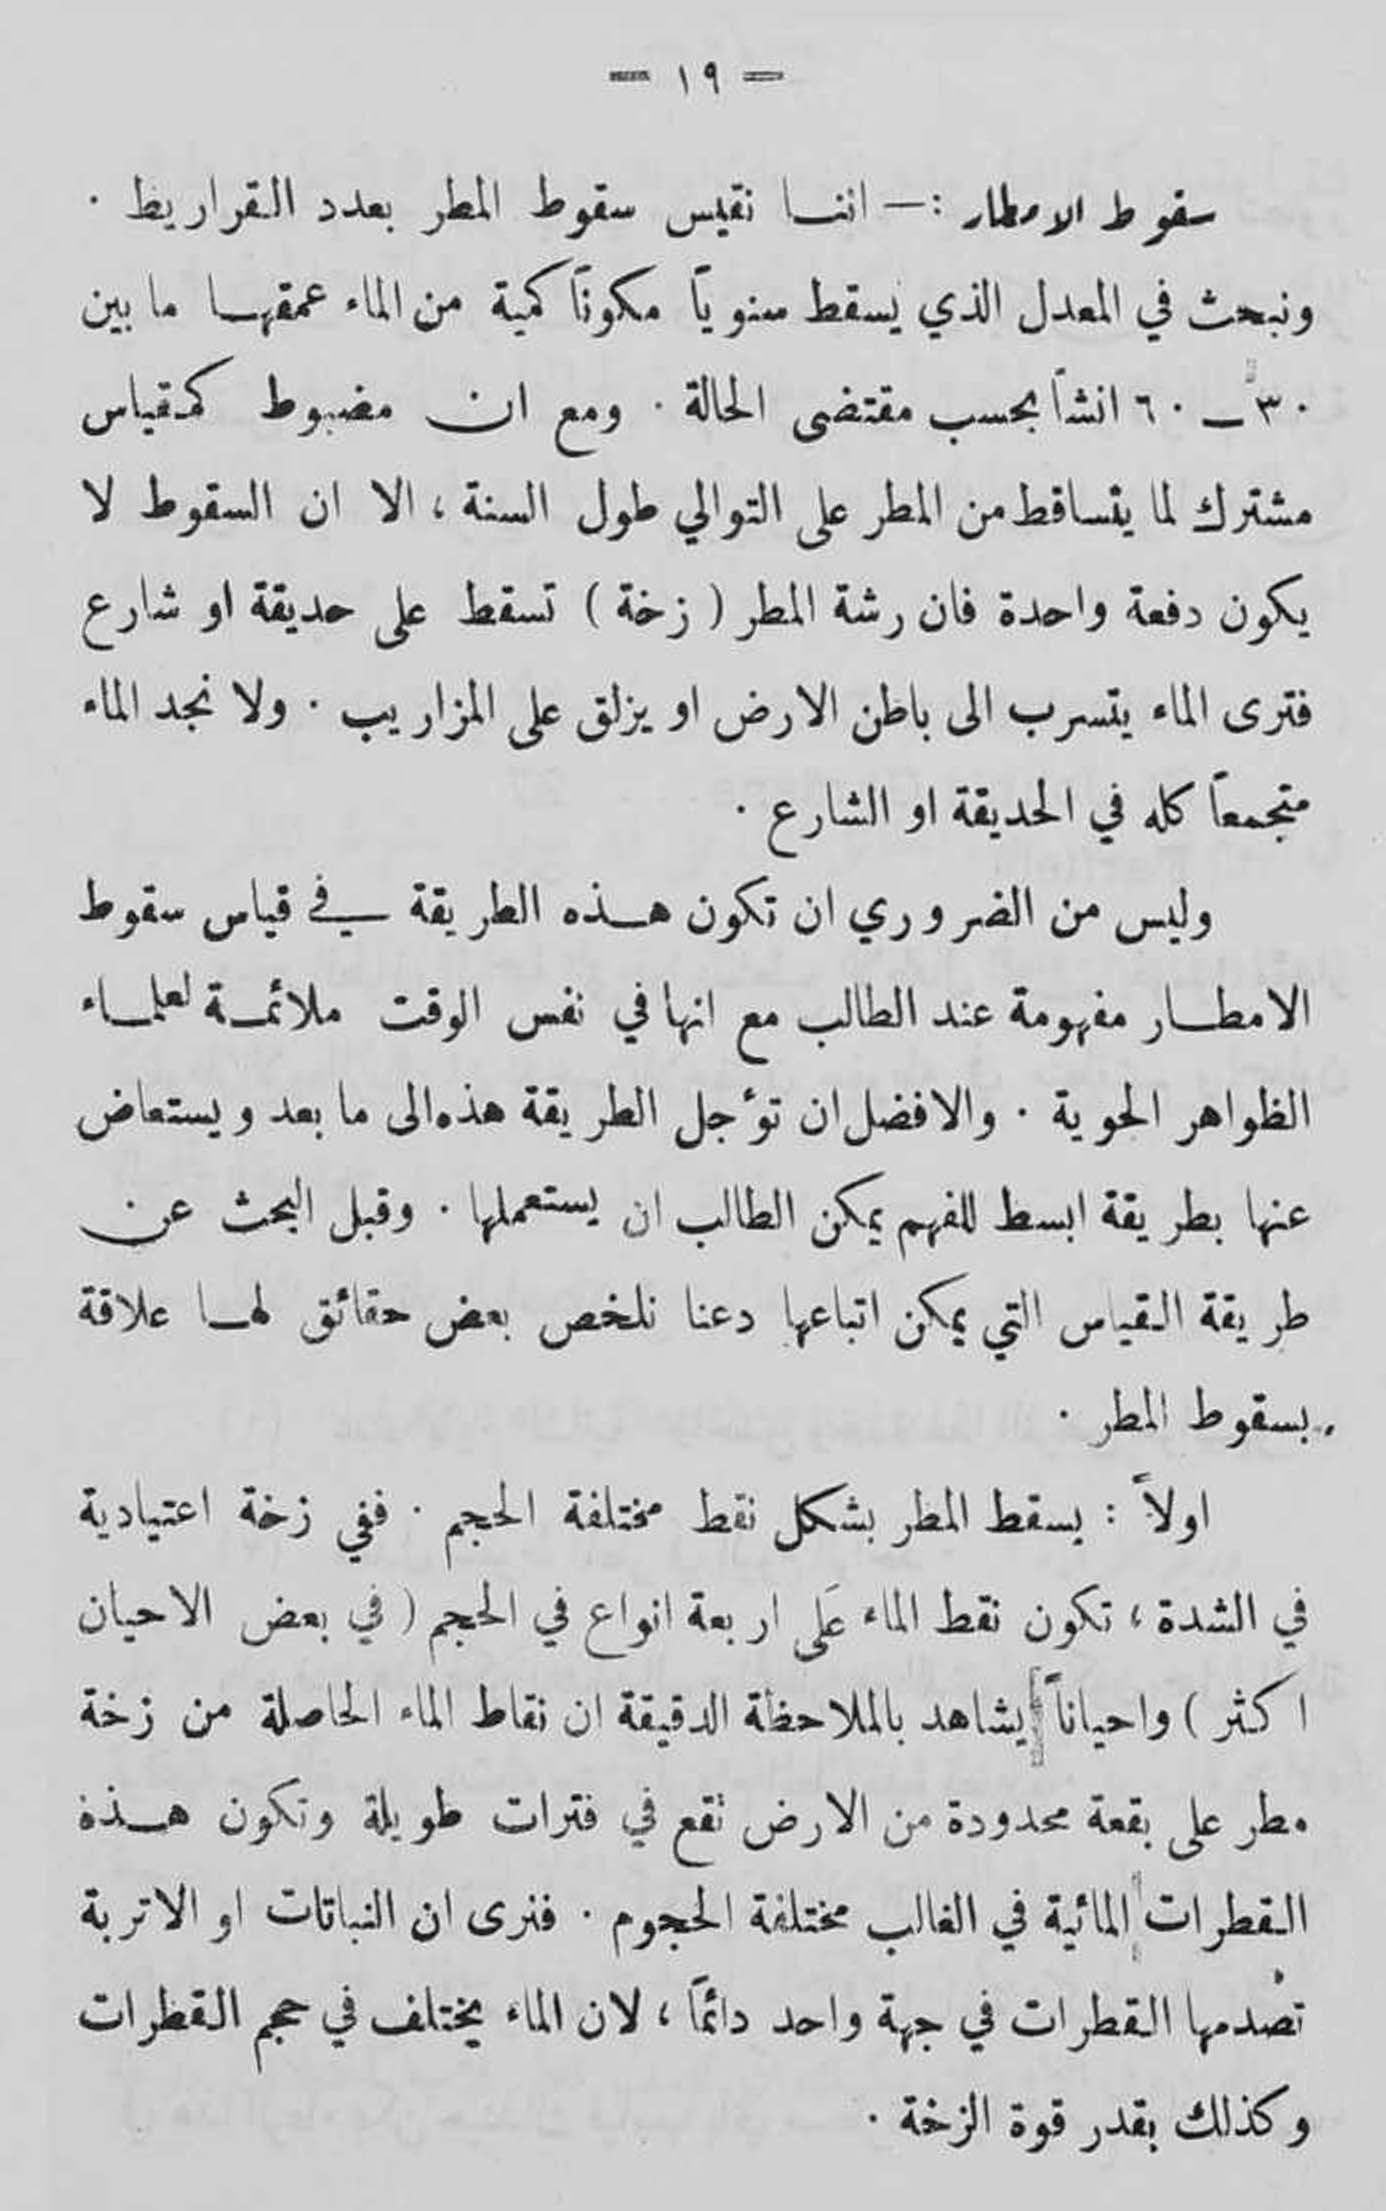 — ١٩ —
سقوط الامطار :— اننا نقيس سقوط المطر بعدد القراريط .
ونبحث في المعدل الذي يسقط سنوياً مكوناً كمية من الماء عمقها ما بين
٣٠ — ٦٠ انشاً بحسب مقتضى الحالة . ومع ان مضبوط كمقياس
مشترك لما يتساقط من المطر على التوالي طول السنة ، الا ان السقوط لا
يكون دفعة واحدة فان رشة المطر ( زخة ) تسقط على حديقة او شارع
فترى الماء يتسرب الى باطن الارض او يزلق على المزاريب . ولا نجد الماء
متجمعاً كله في الحديقة او الشارع .
وليس من الضروري ان تكون هذه الطريقة في قياس سقوط
الامطار مفهومة عند الطالب مع انها في نفس الوقت ملائمة لعلماء
الظواهر الجوية . والافضل ان تؤجل الطريقة هذه الى ما بعد ويستعاض
عنها بطريقة ابسط للفهم يمكن الطالب ان يستعملها . وقبل البحث عن
طريقة القياس التي يمكن اتباعها دعنا نلخص بعض حقائق لها علاقة
بسقوط المطر .
اولاً : يسقط المطر بشكل نقط مختلفة الحجم . ففي زخة اعتيادية
في الشدة ، تكون نقط الماء عَلى اربعة انواع في الحجم ( في بعض الاحيان
اكثر ) واحياناً يشاهد بالملاحظة الدقيقة ان نقاط الماء الحاصلة من زخة
مطر على بقعة محدودة من الارض تقع في فترات طويلة وتكون هذه
القطرات المائية في الغالب مختلفة الحجوم . فنرى ان النباتات او الاتربة
تصدمها القطرات في جهة واحد دائماً ، لان الماء يختلف في حجم القطرات
وكذلك بقدر قوة الزخة .